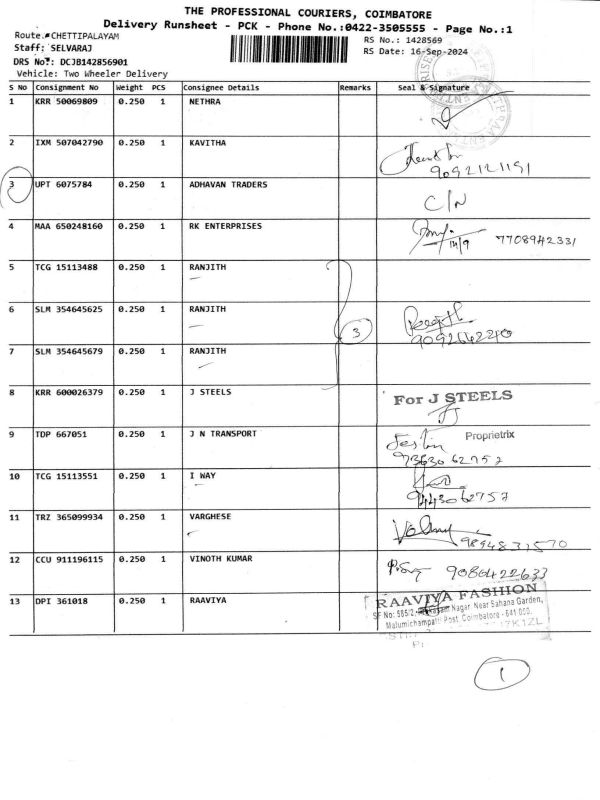 THE PROFESSIONAL COURIERS, COIMBATORE
Delivery Runsheet - PCK - Phone No.:0422-3505555 - Page No.:1
Route.#CHETTIPALAYAM
RS No.: 1428569
Staff: SELVARAJ
RS Date: 16-Sep-2024
DRS No?: DCJB142856901
Vehicle: Two Wheeler Delivery
S No Consignment No Weight PCS Consignee Details Remarks Seal & Signature
1 KRR 50069809 0.250 1 NETHRA
2 IXM 507042790 0.250 1 KAVITHA
9092121191
3 UPT 6075784 0.250 1 ADHAVAN TRADERS C/N
4 MAA 650248160 0.250 1 RK ENTERPRISES 7708942331
5 TCG 15113488 0.250 1 RANJITH
6 SLM 354645625 0.250 1 RANJITH
3
7 SLM 354645679 0.250 1 RANJITH
8 KRR 600026379 0.250 1 J STEELS For J STEELS
Proprietrix
9 TDP 667051 0.250 1 J N TRANSPORT
10 TCG 15113551 0.250 1 I WAY
9443062757
11 TRZ 365099934 0.250 1 VARGHESE
9894831570
12 CCU 911196115 0.250 1 VINOTH KUMAR
13 DPI 361018 0.250 1 RAAVIYA RAAVIYA FASHION
SF No: 585/2, Nagar Near Sahana Garden,
Malumichampatti Post Coimbatore - 641 050.
1